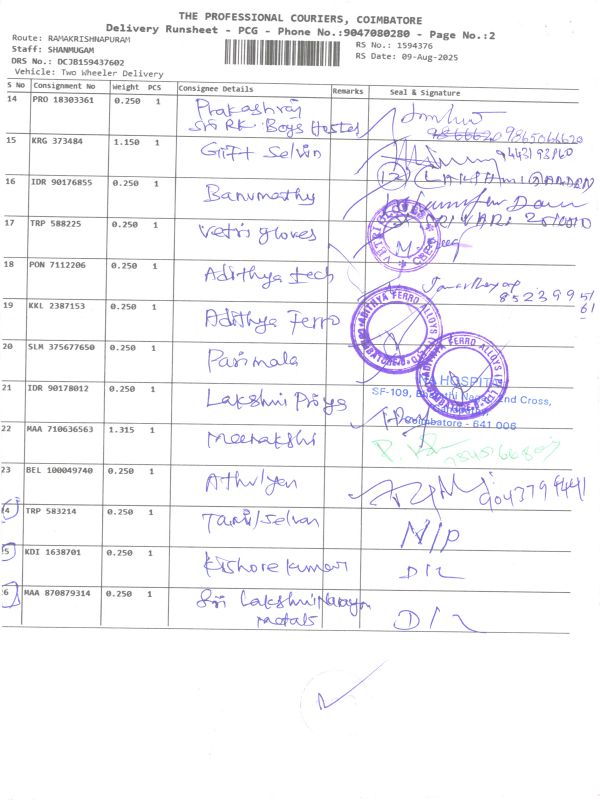 THE PROFESSIONAL COURIERS, COIMBATORE
Delivery Runsheet - PCG - Phone No.:9047080280 - Page No.:2
Route: RAMAKRISHNAPURAM
RS No.: 1594376
Staff: SHANMUGAM
RS Date: 09-Aug-2025
DRS No.: DCJ8159437602
Vehicle: Two Wheeler Delivery
S No Consignment No Weight PCS Consignee Details Remarks Seal & Signature
14 PRO 18303361 0.250 1 Prakashraj
Sri RK Boys Hostel 9865066620
15 KRG 373484 1.150 1 Gift Selvin
16 IDR 90176855 0.250 1 Banumathy
17 TRP 588225 0.250 1 Vetri gloves
18 PON 7112206 0.250 1 Adithya tech
19 KKL 2387153 0.250 1 Adithya Ferro
ADITHYA FERRO ALLOYS (P) LTD
20 SLM 375677650 0.250 1 Parimala
ADITHYA FERRO ALLOYS (P) LTD
21 IDR 90178012 0.250 1 Lakshmi Priya
HOSPITAL
SF-109, Nagar 2nd Cross,
Coimbatore - 641 006
22 MAA 710636563 1.315 1 Meenakshi
23 BEL 100049740 0.250 1 Athulyan 9043799441
24 TRP 583214 0.250 1 Tamil Selvan N/P
25 KDI 1638701 0.250 1 Kishore kumar D/L
26 MAA 870879314 0.250 1 Sri Lakshmi Narayan
metals D/L